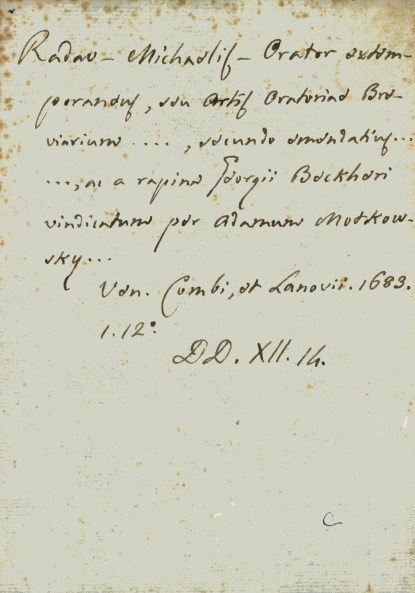 Radau - Michaelis - Orator extem-
poraneus, seu Artis Oratoriae Bre-
viarium ...., secundo emendatius...
..., ac a rapina Georgii Beckheri
vindicatum per Adamum Motkow-
sky...
Ven. Combi, et Lanovii. 1683.
1.12°.
DD. XII. 14.
C